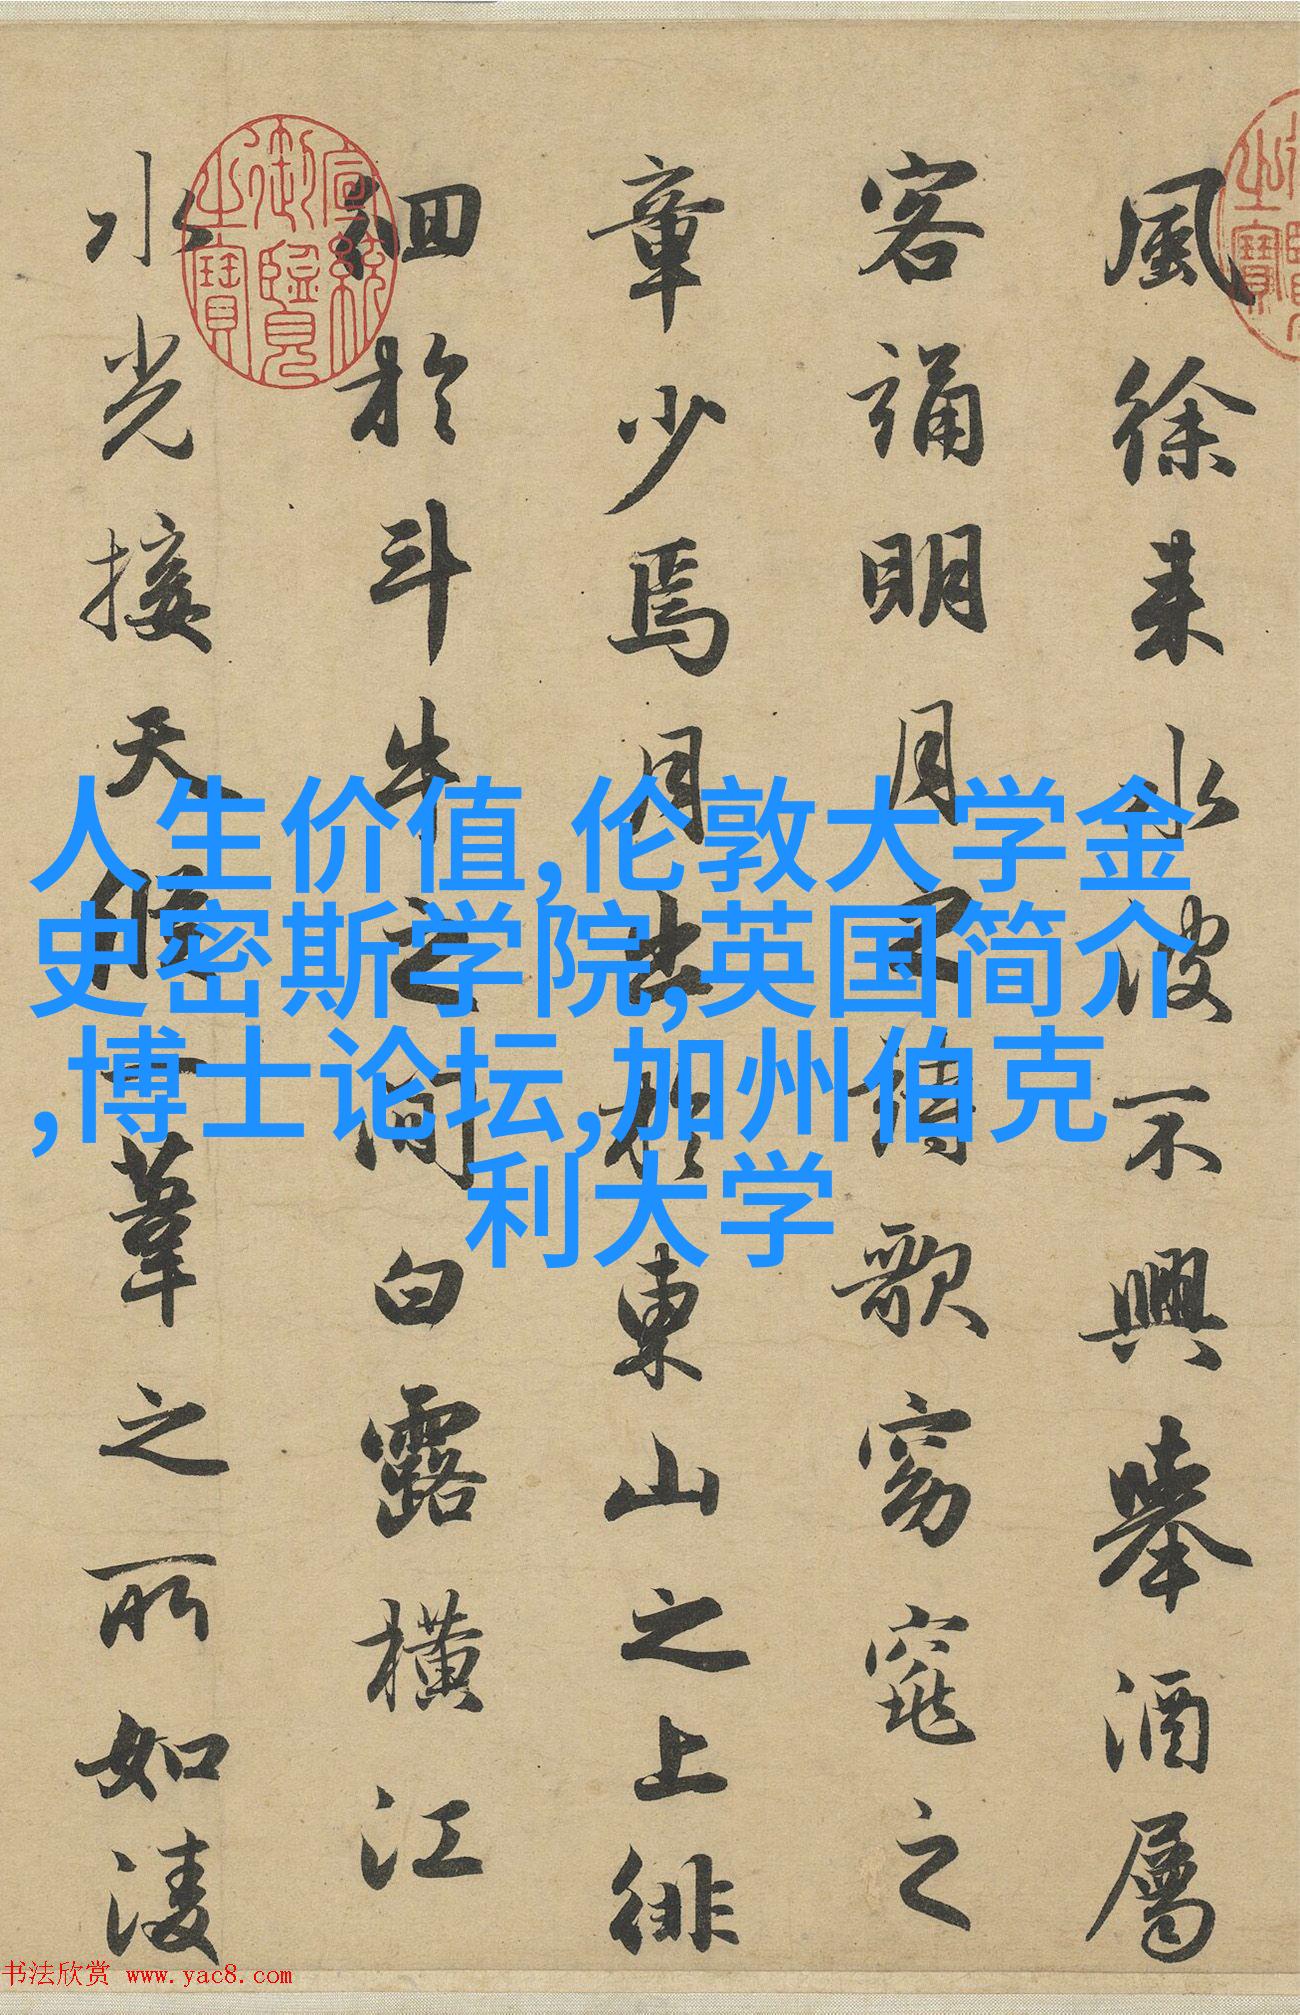 風徐来水波不興舉酒屬
客誦明月之詩歌窈窕之
章少焉月出於東山之上徘
徊於斗牛之间白露橫江
水光接天縱一葦之所如凌
宣統御覽之寶
人生价值,伦敦大学金
史密斯学院,英国简介
,博士论坛,加州伯克
利大学
书法欣赏 www.yac8.com